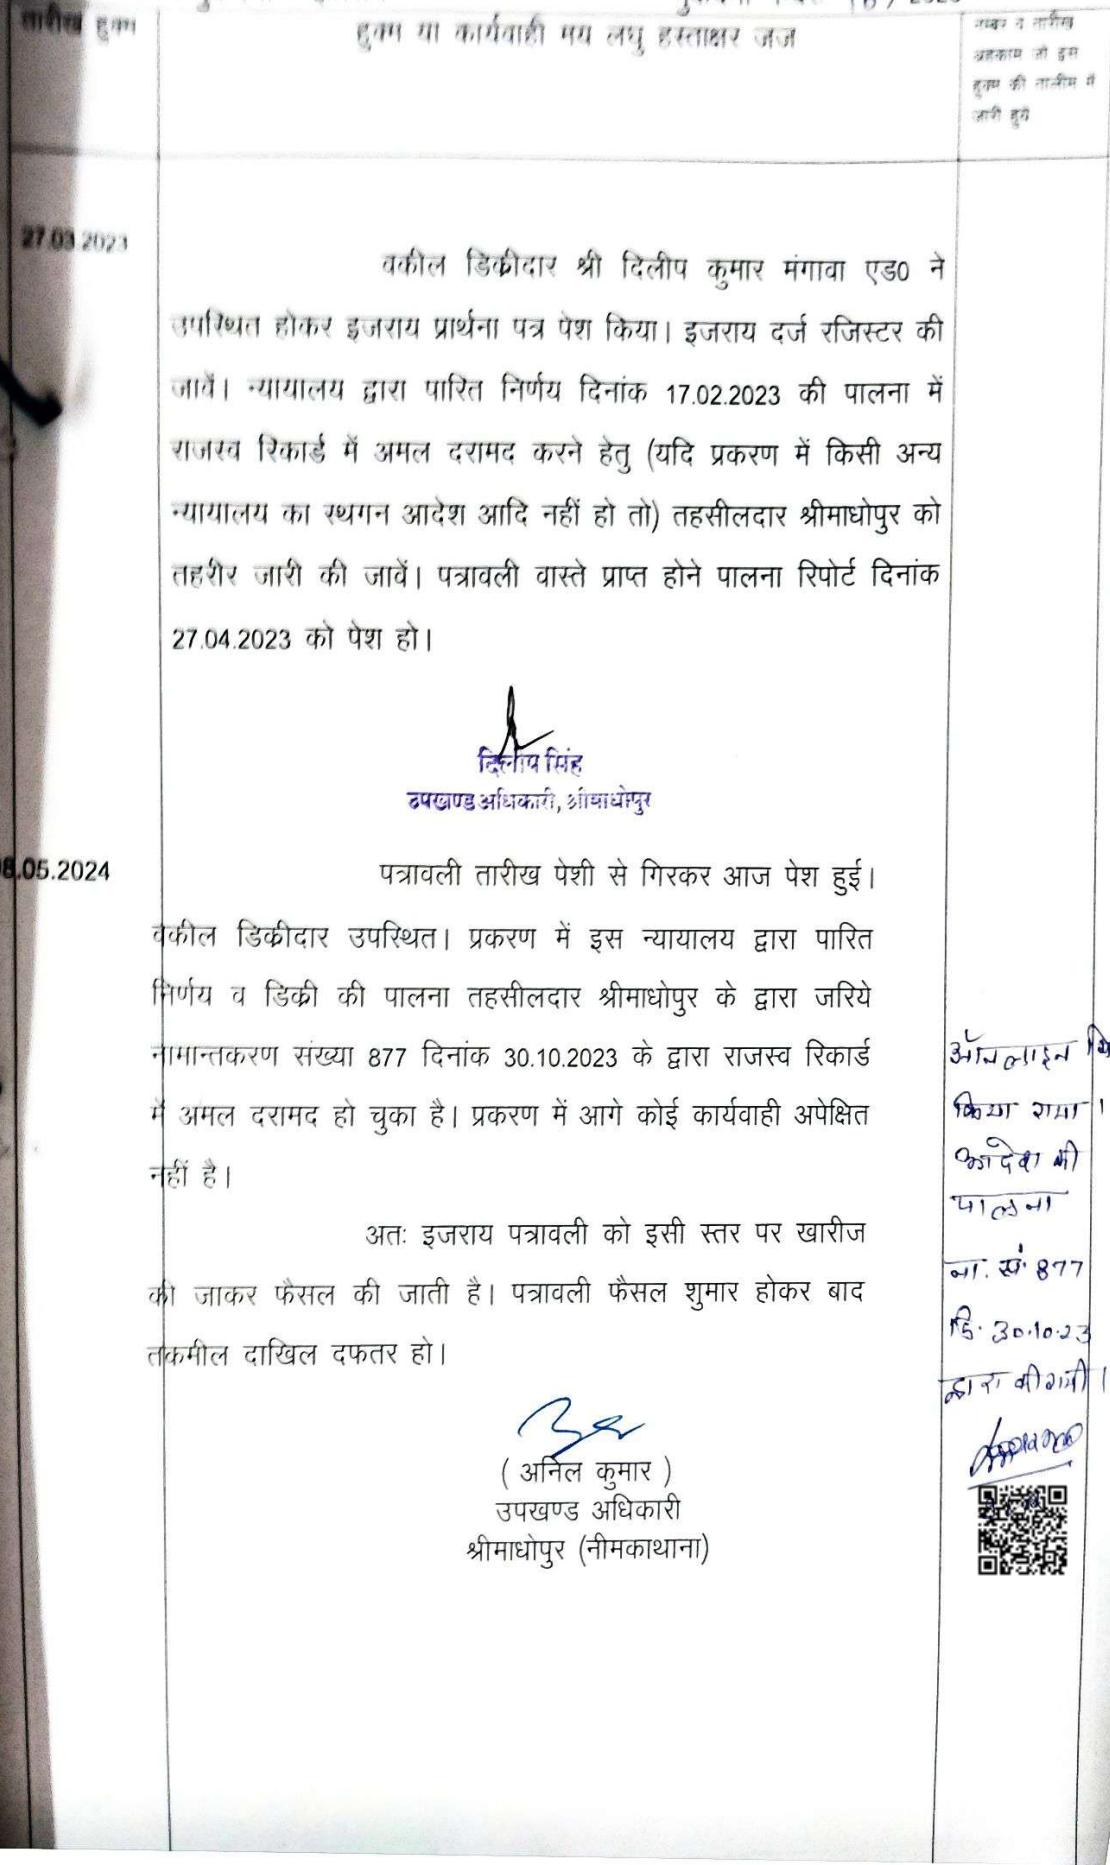 तारीख हुक्म
हुक्म या कार्यवाही मय लघु हस्ताक्षर जज
नम्बर व तारीख
अहकाम जो इस
हुक्म की तालीम में
जारी हुये
27.03.2023
वकील डिक्रीदार श्री दिलीप कुमार मंगावा एड0 ने
उपस्थित होकर इजराय प्रार्थना पत्र पेश किया। इजराय दर्ज रजिस्टर की
जावें। न्यायालय द्वारा पारित निर्णय दिनांक 17.02.2023 की पालना में
राजस्व रिकार्ड में अमल दरामद करने हेतु (यदि प्रकरण में किसी अन्य
न्यायालय का स्थगन आदेश आदि नहीं हो तो) तहसीलदार श्रीमाधोपुर को
तहरीर जारी की जावें। पत्रावली वास्ते प्राप्त होने पालना रिपोर्ट दिनांक
27.04.2023 को पेश हो।
दिलीप सिंह
उपखण्ड अधिकारी, श्रीमाधोपुर
8.05.2024
पत्रावली तारीख पेशी से गिरकर आज पेश हुई।
वकील डिक्रीदार उपस्थित। प्रकरण में इस न्यायालय द्वारा पारित
निर्णय व डिक्री की पालना तहसीलदार श्रीमाधोपुर के द्वारा जरिये
नामान्तकरण संख्या 877 दिनांक 30.10.2023 के द्वारा राजस्व रिकार्ड
में अमल दरामद हो चुका है। प्रकरण में आगे कोई कार्यवाही अपेक्षित
नहीं है।
अतः इजराय पत्रावली को इसी स्तर पर खारीज
की जाकर फैसल की जाती है। पत्रावली फैसल शुमार होकर बाद
तकमील दाखिल दफतर हो।
ऑनलाइन
किया गया।
आदेश की
पालना
ना. सं. 877
दि. 30.10.23
द्वारा की गयी।
( अनिल कुमार )
उपखण्ड अधिकारी
श्रीमाधोपुर (नीमकाथाना)